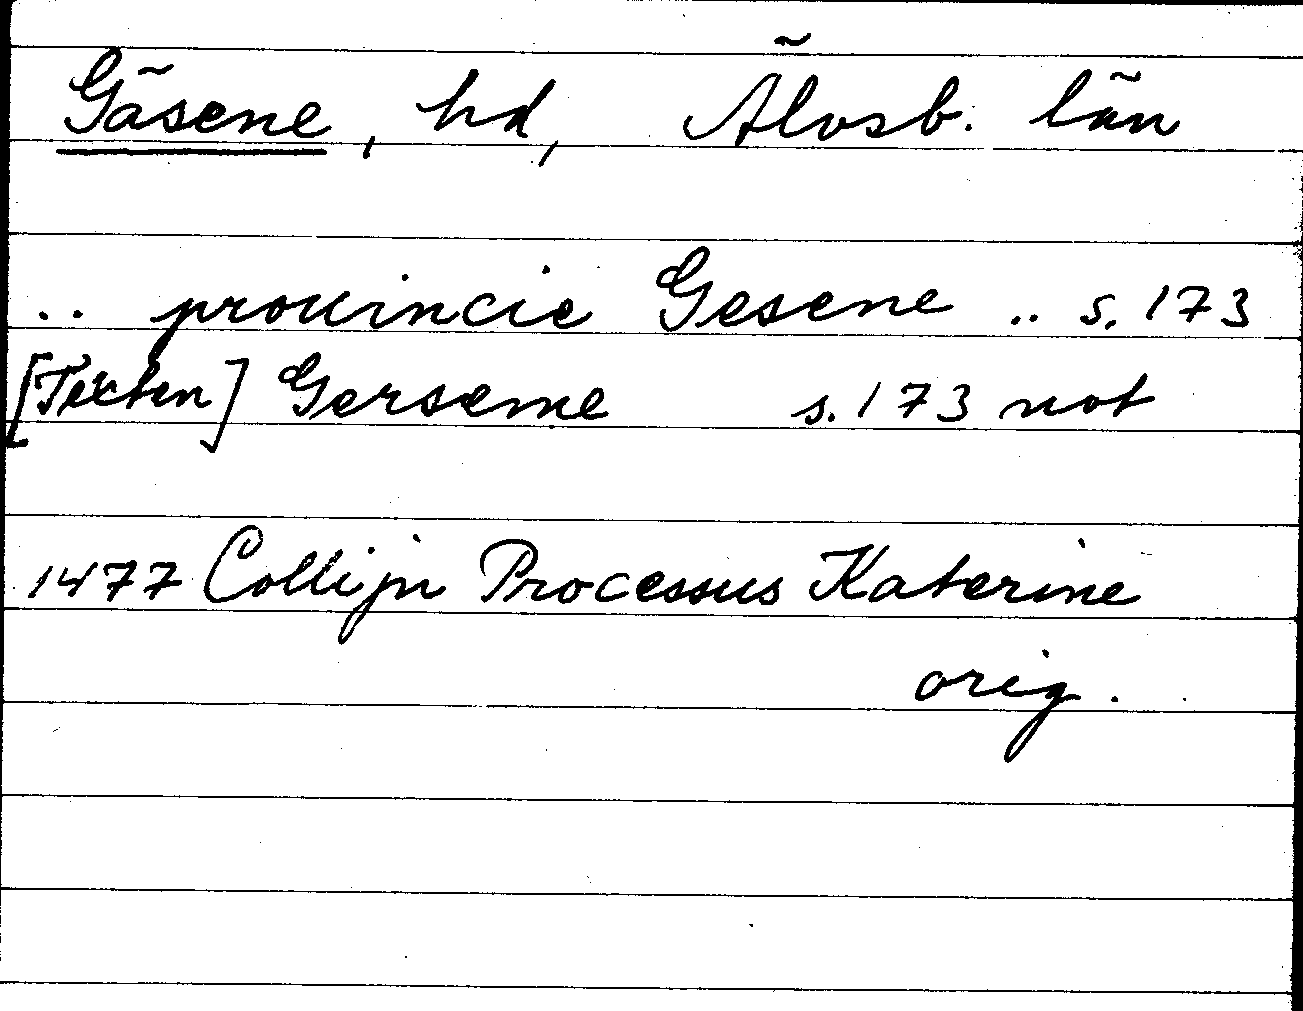 Gäsene, hd, Älvsb. län
.. prouincie Gesene .. s. 173
[Texten] Gerseme s. 173 not
1477 Collijn Processus Katerine
orig.